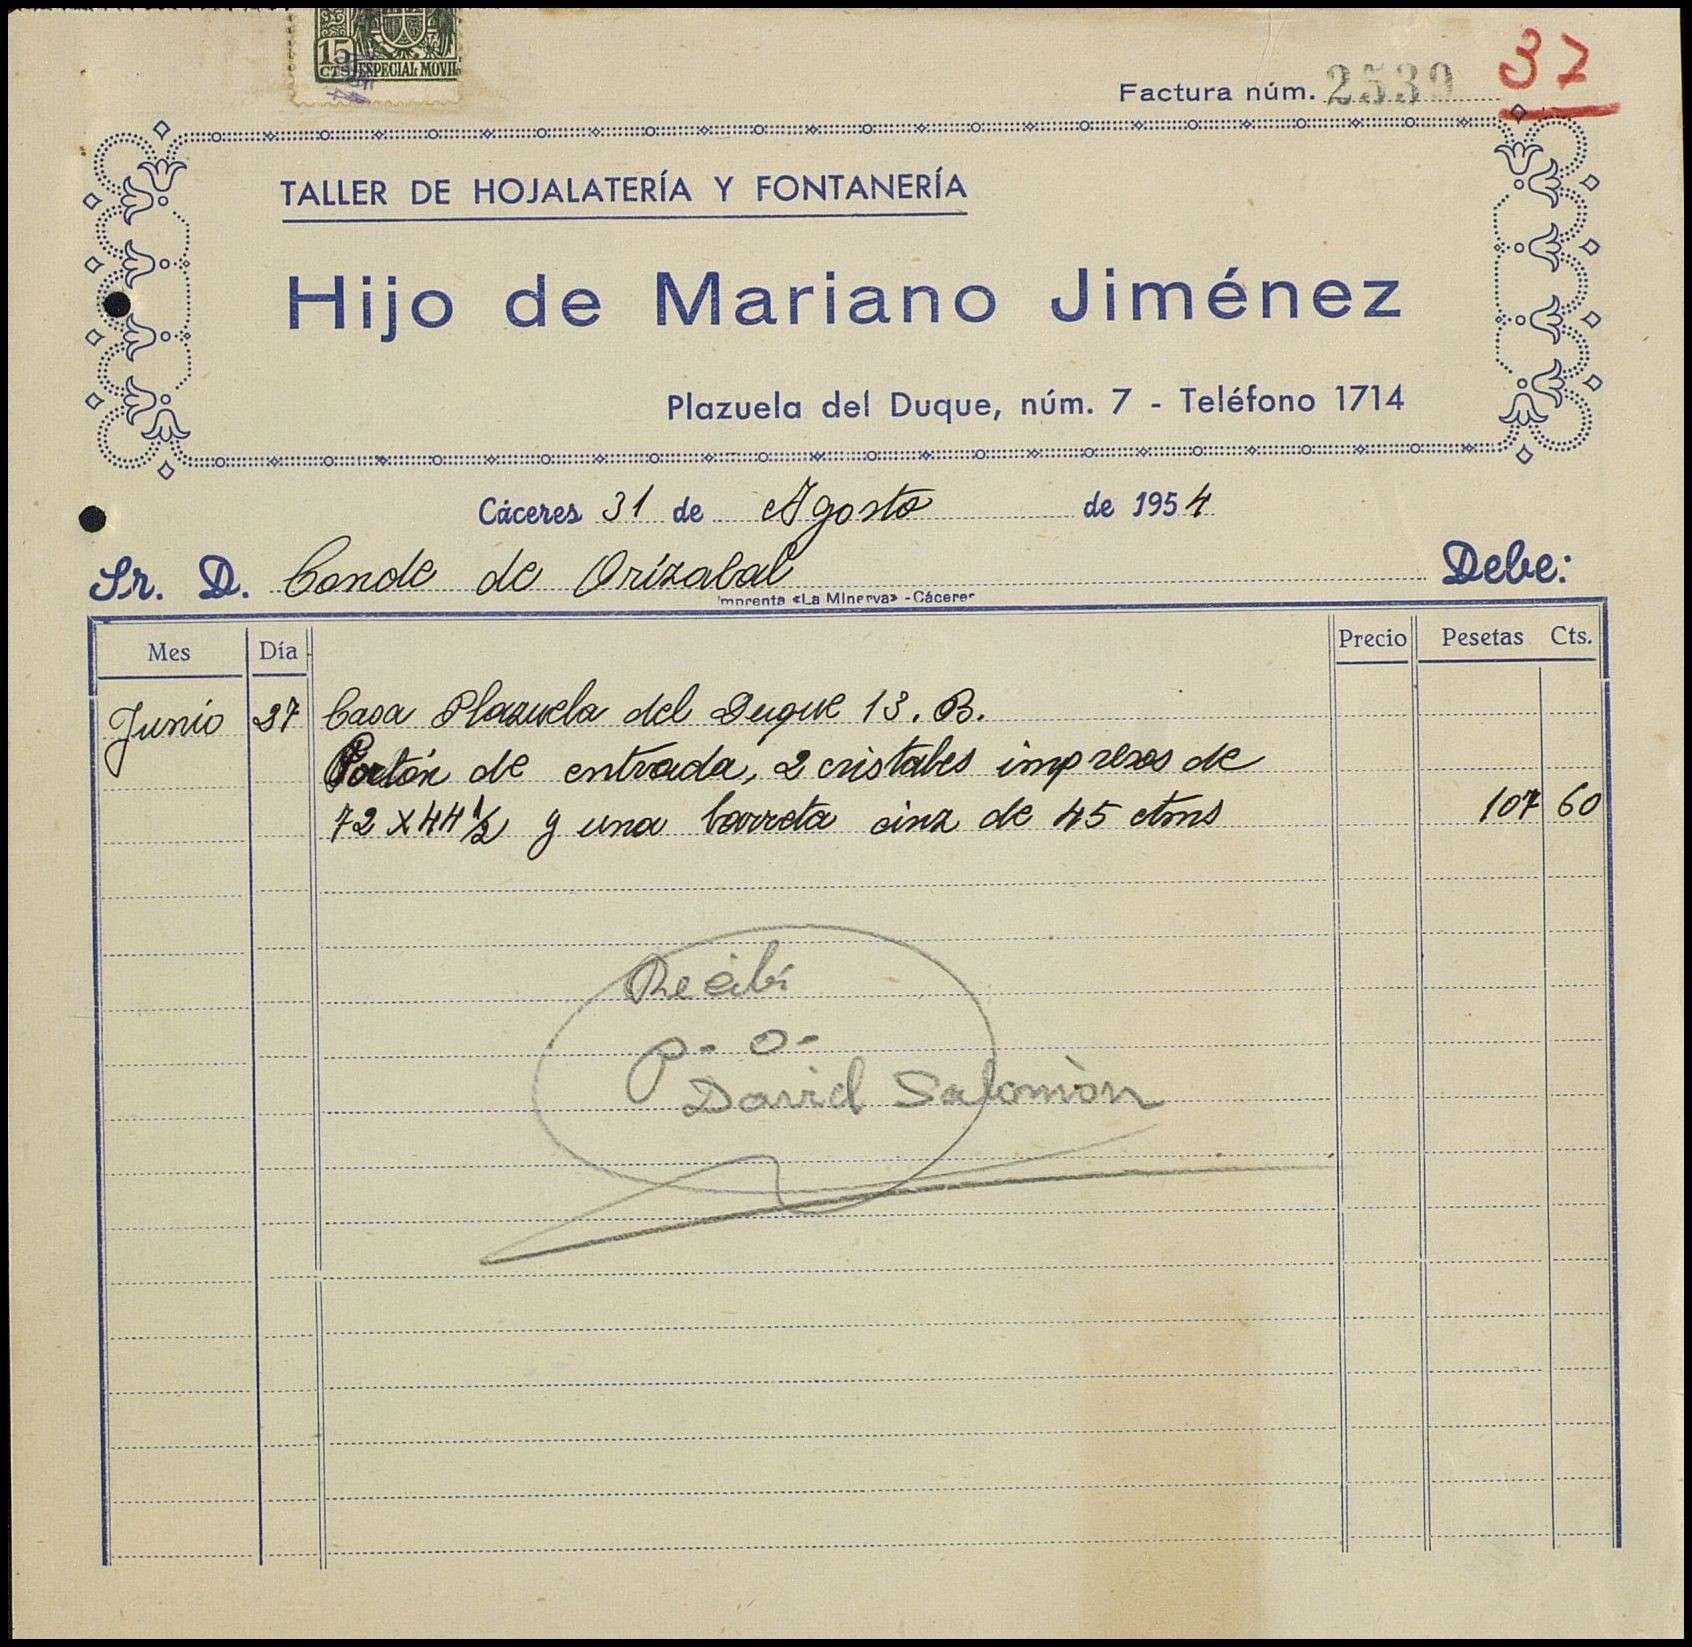 15
CTS ESPECIAL MOVIL
Factura núm. 2539
37
TALLER DE HOJALATERÍA Y FONTANERÍA
Hijo de Mariano Jiménez
Plazuela del Duque, núm. 7 - Teléfono 1714
Cáceres 31 de Agosto de 1954
Sr. D. Conde de Orizabal Debe:
Imprenta «La Minerva» - Cáceres
Mes Día Precio Pesetas Cts.
Junio 27 Casa Plazuela del Duque 13. B.
Portón de entrada, 2 cristales impresos de
72 x 44 1/2 y una barreta cinz de 45 ctms 107 60
Recibí
P- O-
David Salomón